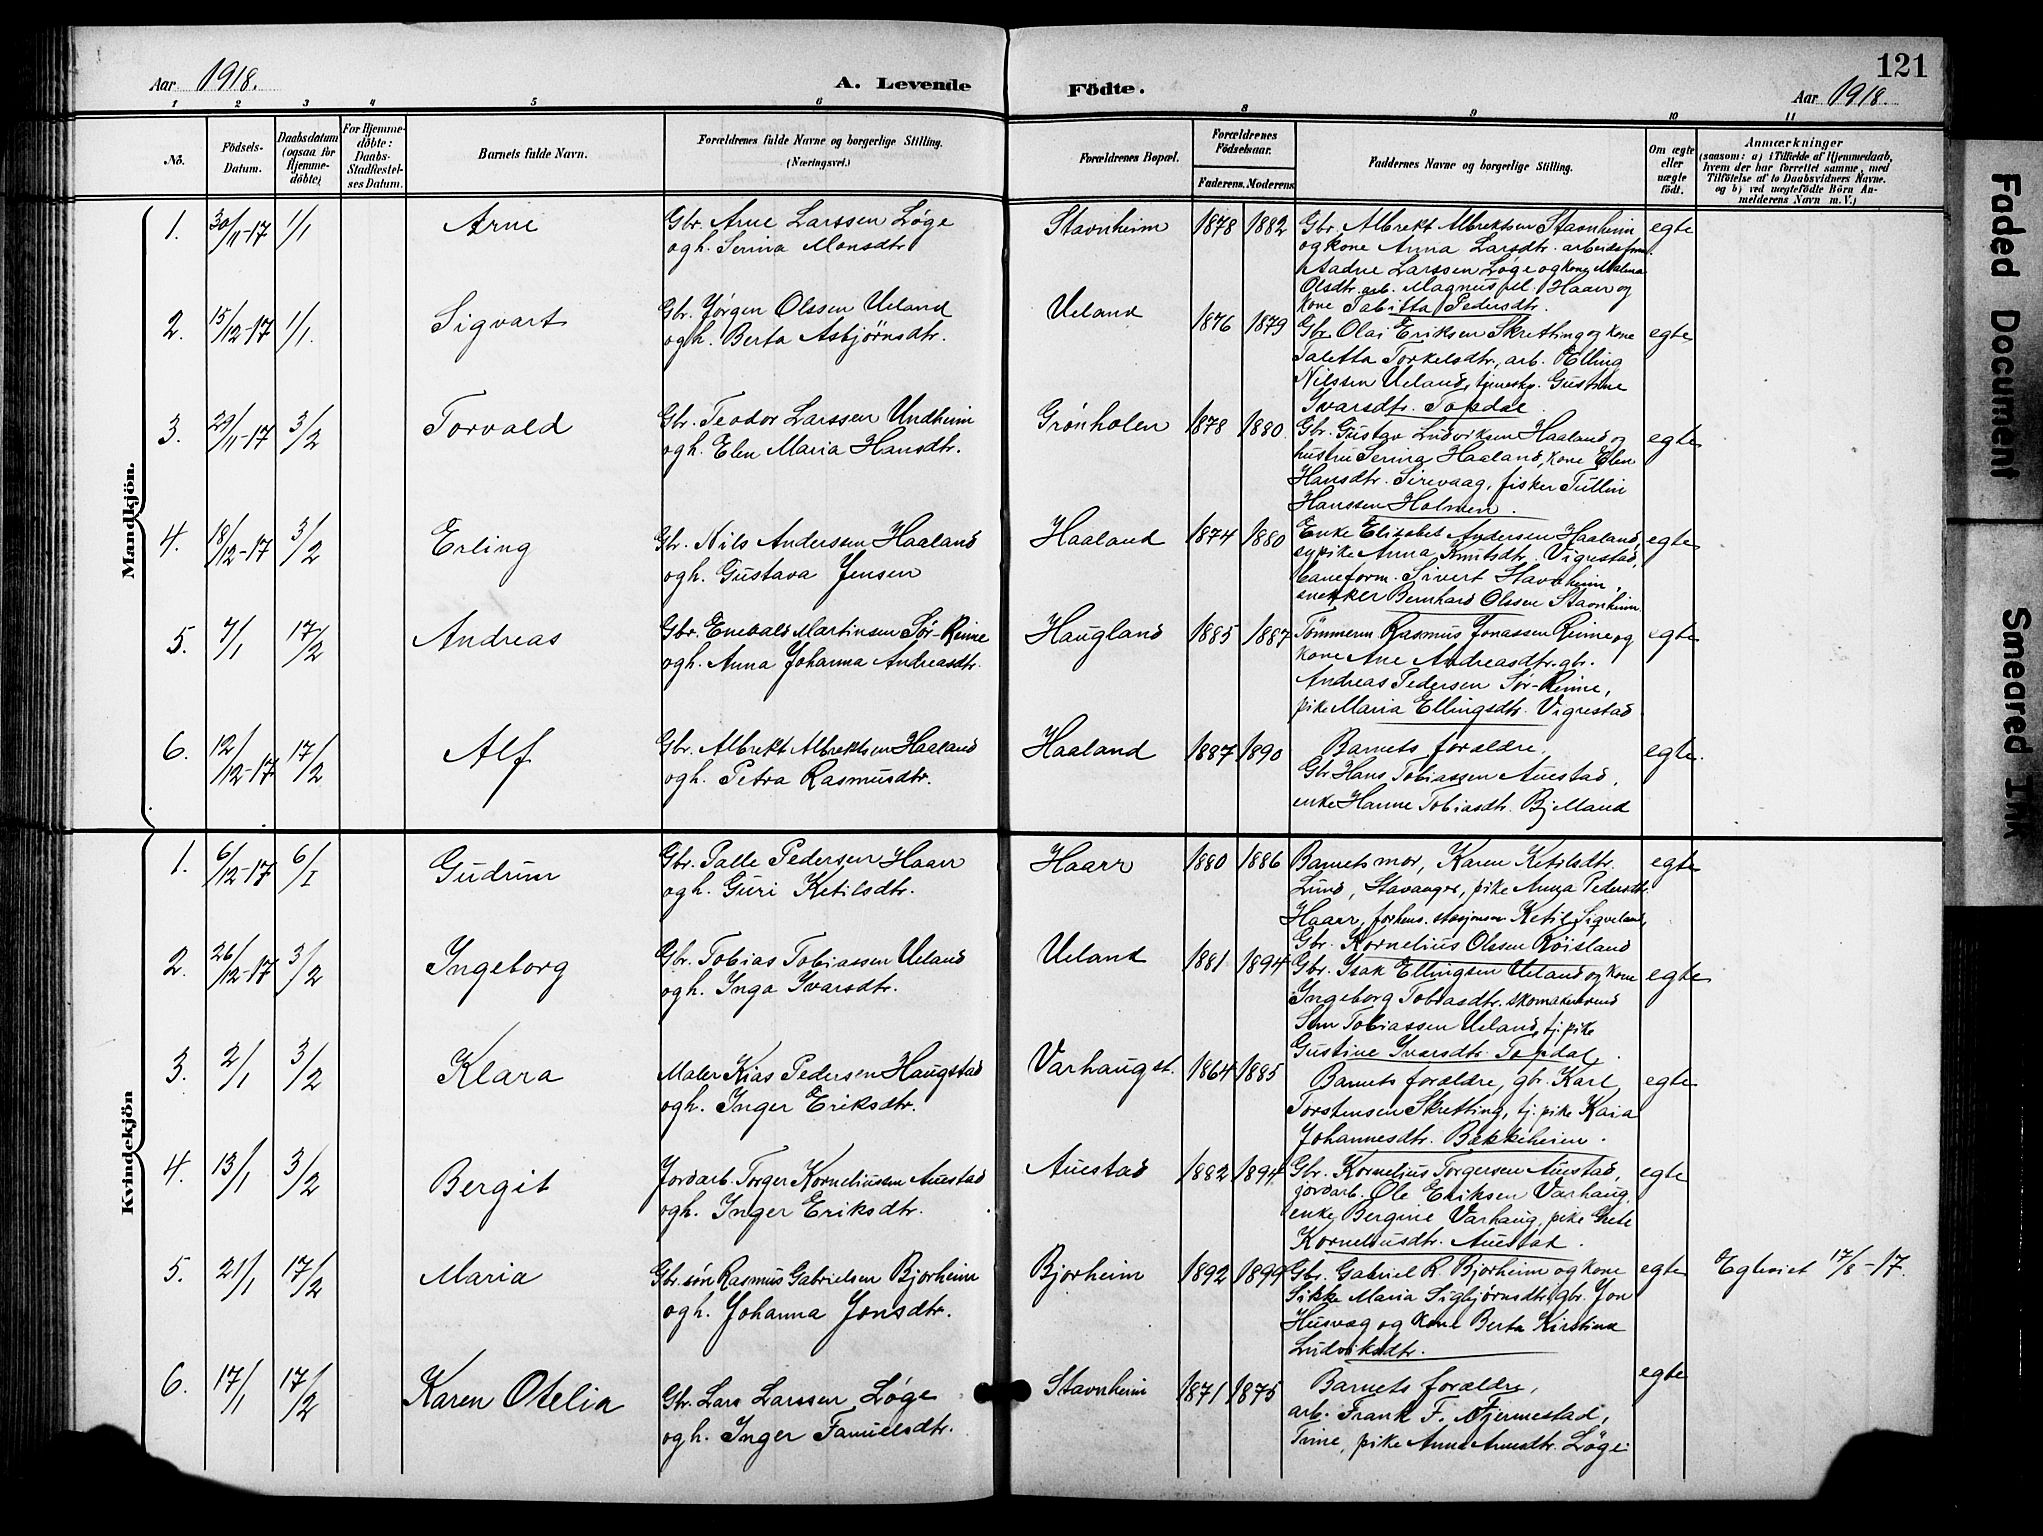 121
Aar 1918.
A. Levende Födte.
Aar 1918.
1 2 3 4 5 6 8 9 10 11
No.
Födsels-Datum.
Daabsdatum (ogsaa for Hjemme-döbte).
For Hjemme-döbte: Daabs-Stadfæstel-ses Datum.
Barnets fulde Navn.
Forældrenes fulde Navne og borgerlige Stilling.
(Næringsvei.)
Forældrenes Bopæl.
Forældrenes Födselsaar.
Faderens. Moderens.
Faddernes Navne og borgerlige Stilling.
Om ægte eller uægte födt.
Anmærkninger
(saasom: a) i Tilfælde af Hjemmedaab,
hvem der har forrettet samme, med
Tilföielse af to Daabsvidners Navne.
og b) ved uægtefödte Börn An-
melderens Navn m. V.)
Mandkjön.
1. 30/11-17 1/1 Arne Gbr. Arne Larssen Løge Stavnheim 1878 1882 Gbr. Albrekt Albrektsen Stavnheim egte
ogh. Serina Monsdtr. og kone Anna Larsdtr. arbeidsform.
Aadne Larssen Løge og kone Malena
Olsdtr. arb. Magnus M. Haarr og
kone Tabitta Pedersdtr.
2. 15/12-17 1/1. Sigvart Gbr. Jørgen Olssen Ueland Ueland 1876 1879 Gbr. Olai Eriksen Skretting og kone egte
ogh. Berta Asbjørnsdtr. Taletta Torkelsdtr., arb. Elling
Nilssen Ueland, tjenestep. Gustine
Ivarsdtr. Topdal.
3. 29/11-17 3/2 Torvald Gbr. Teodor Larssen Undheim Grønholen 1878 1880 Gbr. Gustav Ludviksen Haaland og egte
ogh. Elen Maria Hansdtr. hustru Serina Haaland, kone Elen
Hansdtr. Sirevaag, fisker Tullin
Hanssen Holmen.
4. 18/12-17 3/2 Erling Gbr. Nils Anderssen Haaland Haaland 1874 1880 Enke Elizabet Andersen Haaland, egte
ogh. Gustava Jensen sypike Anna Knutsdtr. Vigrestad,
baneform. Sivert Stavnheim,
snekker Bernhard Olssen Stavnheim.
5. 7/1 17/2 Andreas Gbr. Enevald Martinsen Sør-Reime Haugland 1885 1887 Tømmerm. Rasmus Jonassen Reime og egte
ogh. Anna Johanna Andreasdtr. kone Ane Andreasdtr. gbr.
Andreas Pedersen Sør-Reime,
pike Maria Ellingsdtr. Vigrestad
6. 12/12-17 17/2 Alf Gbr. Albrekt Albrektsen Haaland Haaland 1887 1890 Barnets forældre, egte.
ogh. Petra Rasmusdtr. Gbr Hans Tobiassen Auestad,
enke Hanne Tobiasdtr. Bjelland
Kvindekjön
1. 6/12-17 6/1 Gudrun Gbr. Palle Pedersen Haarr Haarr 1880 1886 Barnets mor, Karen Ketilsdtr. egte
ogh. Guri Ketilsdtr. Lund, Stavanger, pike Anna Pedersdtr.
Haarr, forhens. stasjonsm Ketil Sigveland,
Gbr. Kornelius Olssen Røisland
2. 26/12-17 3/2 Ingeborg Gbr. Tobias Tobiassen Ueland Ueland 1881 1894 Gbr. Isak Ellingsen Ueland og kone egte
ogh. Inga Ivarsdtr. Ingeborg Tobiasdtr. skomakersvend
Sem Tobiassen Ueland, tj. pike
Gustine Ivarsdtr. Topdal.
3. 2/1 3/2 Klara Maler Kias Pedersen Haugstad Varhaugst. 1864 1885 Barnets forældre, gbr. Karl egte
ogh. Inger Eriksdtr. Torstensen Skretting, tj. pike Kaia
Johannesdtr. Bakkeheim.
4. 13/1 3/2 Bergit Jordarb. Torger Korneliussen Auestad Auestad 1882 1894 Gbr. Kornelius Torgersen Auestad, egte
ogh. Inger Eriksdtr. jordarb. Ole Eriksen Varhaug,
enke Bergine Varhaug, pike Grete
Korneliusdtr. Auestad.
5. 21/1 17/2 Maria Gbr.søn Rasmus Gabrielsen Bjorheim Bjorheim 1892 1899 Gbr. Gabriel R. Bjorheim og kone egte Egteviet 17/8-17.
ogh. Johanna Jonsdtr. Sikke Maria Sigbjørnsdtr. gbr. Jon
Husvæg og kone Berta Kirstina
Ludviksdtr.
6. 17/1 17/2 Karen Otelia Gbr. Lars Larssen Løge Stavnheim 1871 1875 Barnets forældre, egte
ogh. Inger Samuelsdtr. arb. Frank F. Fjermestad,
Time, pike Anna Arnesdtr. Løge.
Faded Document
Smeared Ink